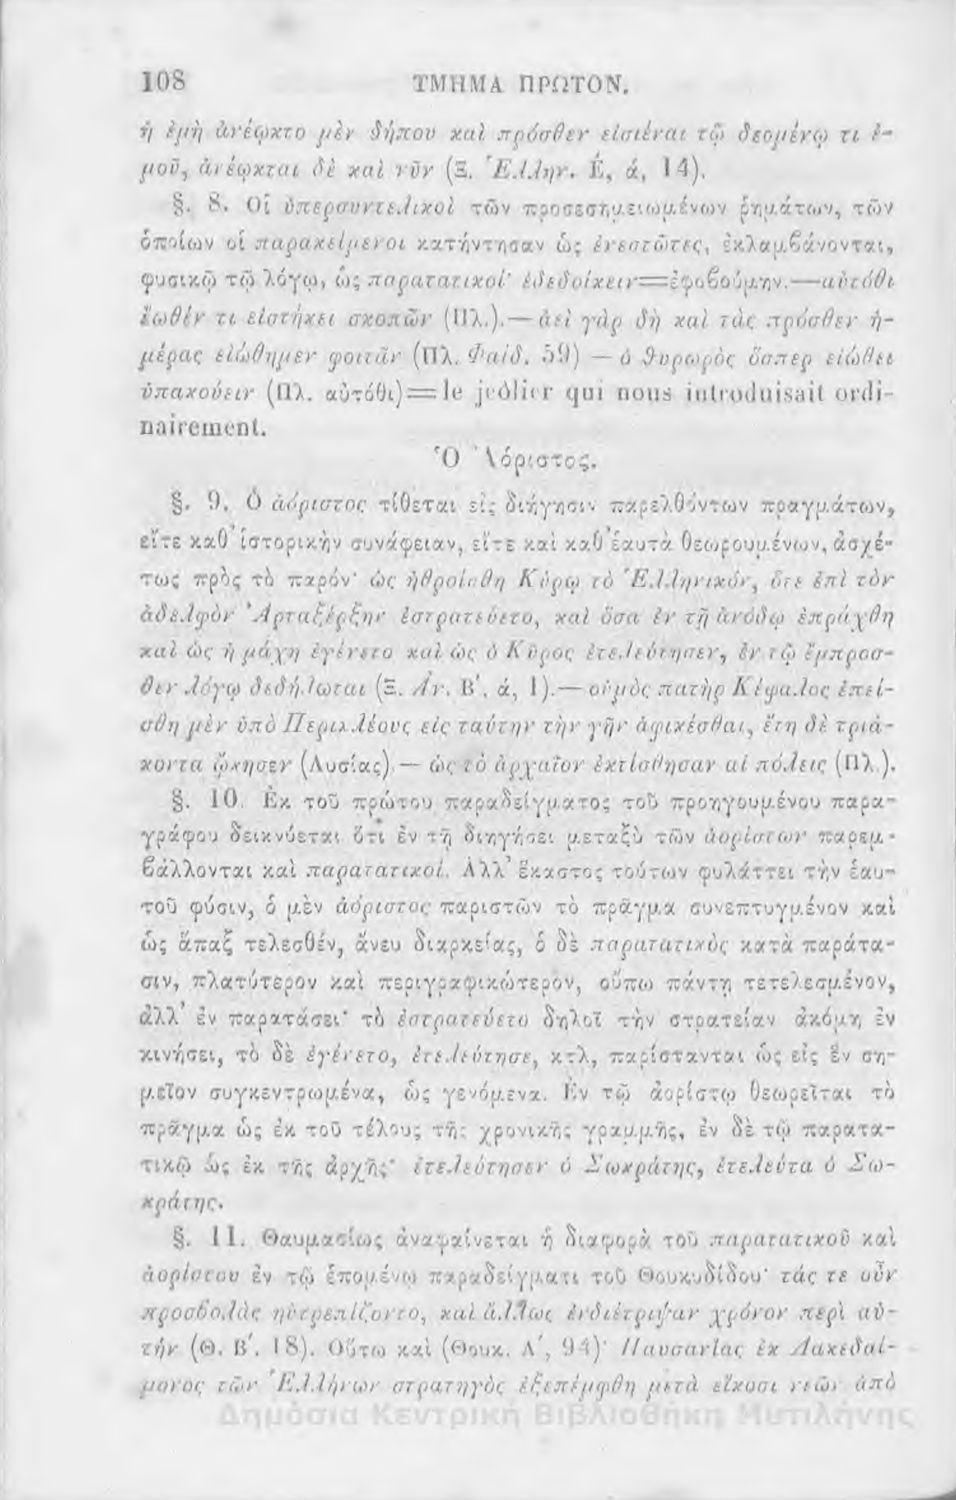 108 ΤΜΗΜΑ ΠΡΩΤΟΝ.
ἡ ἐμὴ ἀνέῳκτο μὲν δήπου καὶ πρόσθεν εἰσιέναι τῷ δεομένῳ τι ἐ-
μοῦ, ἀνέῳκται δὲ καὶ νῦν (Ξ. Ἑλλην. Ε, ά, 14).
§. 8. Οἱ ὑπερσυντελικοὶ τῶν προσεσημειωμένων ῥημάτων, τῶν
ὁποίων οἱ παρακείμενοι κατήντησαν ὡς ἐνεστῶτες, ἐκλαμβάνονται,
φυσικῷ τῷ λόγῳ, ὡς παρατατικοί· ἐδεδοίκειν=ἐφοβούμην.—αὐτόθι
ἑωθέν τι εἱστήκει σκοπῶν (Πλ.).— ἀεὶ γὰρ δὴ καὶ τὰς πρόσθεν ἡ-
μέρας εἰώθημεν φοιτᾶν (Πλ. Φαίδ. 59) — ὁ θυρωρὸς ὅσπερ εἰώθει
ὑπακούειν (Πλ. αὐτόθι)=le jeôlier qui nous introduisait ordi-
nairement.
Ὁ Ἀόριστος.
§. 9. Ὁ ἀόριστος τίθεται εἰς διήγησιν παρελθόντων πραγμάτων,
εἴτε καθ᾽ ἱστορικὴν συνάφειαν, εἴτε καὶ καθ᾽ ἑαυτὰ θεωρουμένων, ἀσχέ-
τως πρὸς τὸ παρόν· ὡς ἠθροίσθη Κύρῳ τὸ Ἑλληνικόν, ὅτε ἐπὶ τὸν
ἀδελφὸν Ἀρταξέρξην ἐστρατεύετο, καὶ ὅσα ἐν τῇ ἀνόδῳ ἐπράχθη
καὶ ὡς ἡ μάχη ἐγένετο καὶ ὡς ὁ Κῦρος ἐτελεύτησεν, ἐν τῷ ἔμπροσ-
θεν λόγῳ δεδήλωται (Ξ. Ἀν. Β΄, ά, 1).— οὑμὸς πατὴρ Κέφαλος ἐπεί-
σθη μὲν ὑπὸ Περικλέους εἰς ταύτην τὴν γῆν ἀφικέσθαι, ἔτη δὲ τριά-
κοντα ᾤκησεν (Λυσίας) — ὡς τὸ ἀρχαῖον ἐκτίσθησαν αἱ πόλεις (Πλ.).
§. 10. Ἐκ τοῦ πρώτου παραδείγματος τοῦ προηγουμένου παρα-
γράφου δεικνύεται ὅτι ἐν τῇ διηγήσει μεταξὺ τῶν ἀορίστων παρεμ-
βάλλονται καὶ παρατατικοί. Ἀλλ᾽ ἕκαστος τούτων φυλάττει τὴν ἑαυ-
τοῦ φύσιν, ὁ μὲν ἀόριστος παριστῶν τὸ πρᾶγμα συνεπτυγμένον καὶ
ὡς ἅπαξ τελεσθέν, ἄνευ διαρκείας, ὁ δὲ παρατατικὸς κατὰ παράτα-
σιν, πλατύτερον καὶ περιγραφικώτερον, οὔπω πάντῃ τετελεσμένον,
ἀλλ᾽ ἐν παρατάσει· τὸ ἐστρατεύετο δηλοῖ τὴν στρατείαν ἀκόμη ἐν
κινήσει, τὸ δὲ ἐγένετο, ἐτελεύτησε, κτλ, παρίστανται ὡς εἰς ἓν ση-
μεῖον συγκεντρωμένα, ὡς γενόμενα. Ἐν τῷ ἀορίστῳ θεωρεῖται τὸ
πρᾶγμα ὡς ἐκ τοῦ τέλους τῆς χρονικῆς γραμμῆς, ἐν δὲ τῷ παρατα-
τικῷ ὡς ἐκ τῆς ἀρχῆς· ἐτελεύτησεν ὁ Σωκράτης, ἐτελεύτα ὁ Σω-
κράτης.
§. 11. Θαυμασίως ἀναφαίνεται ἡ διαφορὰ τοῦ παρατατικοῦ καὶ
ἀορίστου ἐν τῷ ἑπομένῳ παραδείγματι τοῦ Θουκυδίδου· τάς τε οὖν
προσβολὰς ηὐτρεπίζοντο, καὶ ἄλλως ἐνδιέτριψαν χρόνον περὶ αὐ-
τήν (Θ. Β΄. 18). Οὕτω καὶ (Θουκ. Α΄, 94)· Παυσανίας ἐκ Λακεδαί-
μονος τῶν Ἑλλήνων στρατηγὸς ἐξεπέμφθη μετὰ εἴκοσι νεῶν ἀπὸ
Δημόσια Κεντρική Βιβλιοθήκη Μυτιλήνης